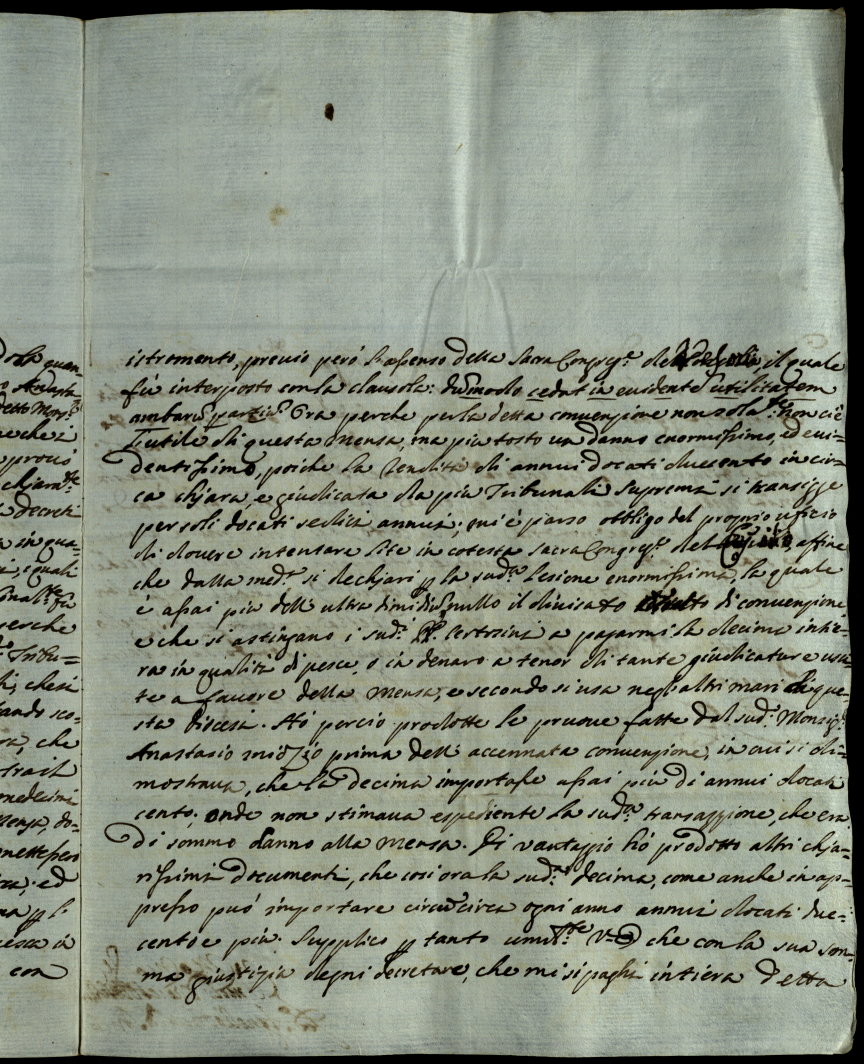 istromento, previo però l'assenso della Sacra Congreg.ne del il quale
fù interposto con la clausola: dummodo cedat in evidente utilitatem
ambarũ partiũ Ora perche per la detta convenzione non sola.te non ci è
l'utile di questa Mensa, ma più tosto un danno enormissimo, ed evi=
dentissimo, poiche la rendita di annui docati duecento in cir=
ca chjara, e giudicata da più Tribunali supremi si transigge
per soli docati sedici annui; mi è parso obbligo del proprio uficio
di dovere intentare lite in cotesta Sacra Congreg.ne del affine
che dalla med.a si dechjari p la sud.a lesione enormissima, la quale
è assai più dell'ultra dimidiũ nullo il divisato di convenzione
e che si astingano i sud.i PP. Certosini a pagarmi la decima intie=
ra in qualità di pesce, o in denaro a tenor di tante giudicature usci
te a favore della Mensa, e secondo si usa negli altri mari di que=
sta Diocesi. Hò perciò prodotte le pruove fatte dal sud.o Monsig.r
Anastasio prima dell'accennata convenzione, in cui si di=
mostrava, che la decima importasse assai più di annui docati
cento; onde non stimava espediente la sud.a transazzione, che era
di sommo danno alla Mensa. Di vantaggio hò prodotto altri chja=
rissimi documenti, che così ora la sud.a decima, come anche in ap=
presso può importare circũcirca ogni anno annui docati due=
cento e più. Supplico p tanto umil.te V. che con la sua som=
ma giustizia degni decretare, che mi si paghi intiera detta
dola quan
detto Mons.r
che i
provò
chjam.te
decreti
in qua=
i quali
fù
perche
Tribu=
chesi
ando sco=
che
trail
medesimi
Mensa, do=
ed
p le
con